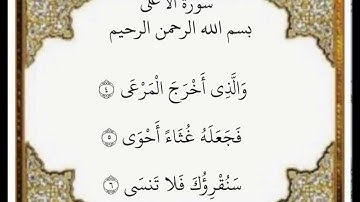 سورة الأعلى
بسم الله الرحمن الرحيم
وَالَّذِى أَخْرَجَ الْمَرْعَى ٤
فَجَعَلَهُ غُثَاءً أَحْوَى ٥
سَنُقْرِؤُكَ فَلَا تَنسَى ٦